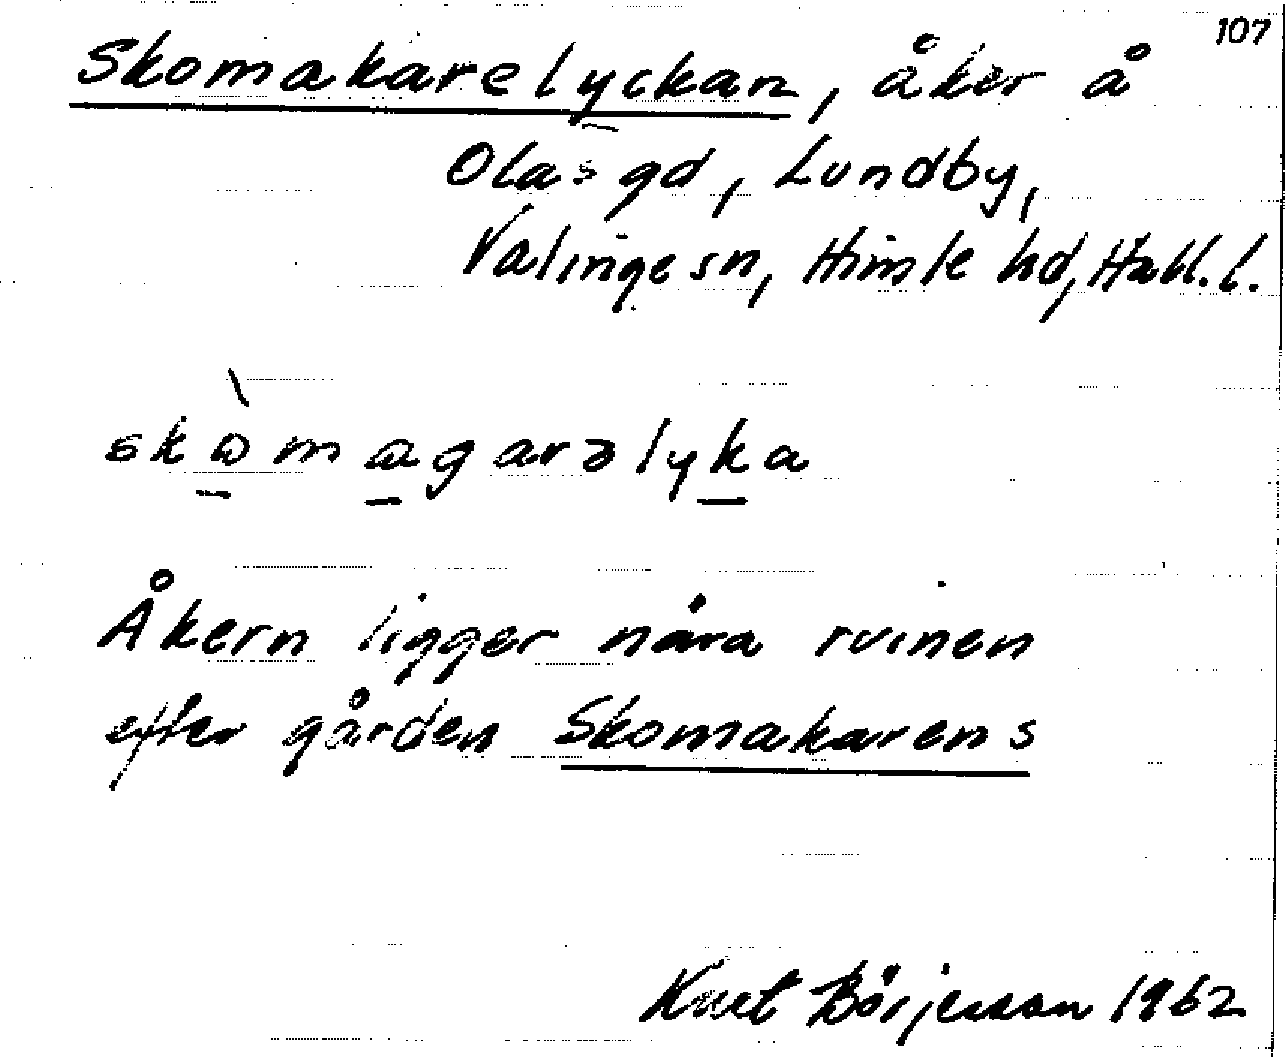 107
Skomakarelyckan, åker å
Olasgd, Lundby,
Valinge sn, Himle hd, Hall. l.
skòmagarəlyka
Åkern ligger nära ruinen
efter gården Skomakarens
Knut Börjesson 1962